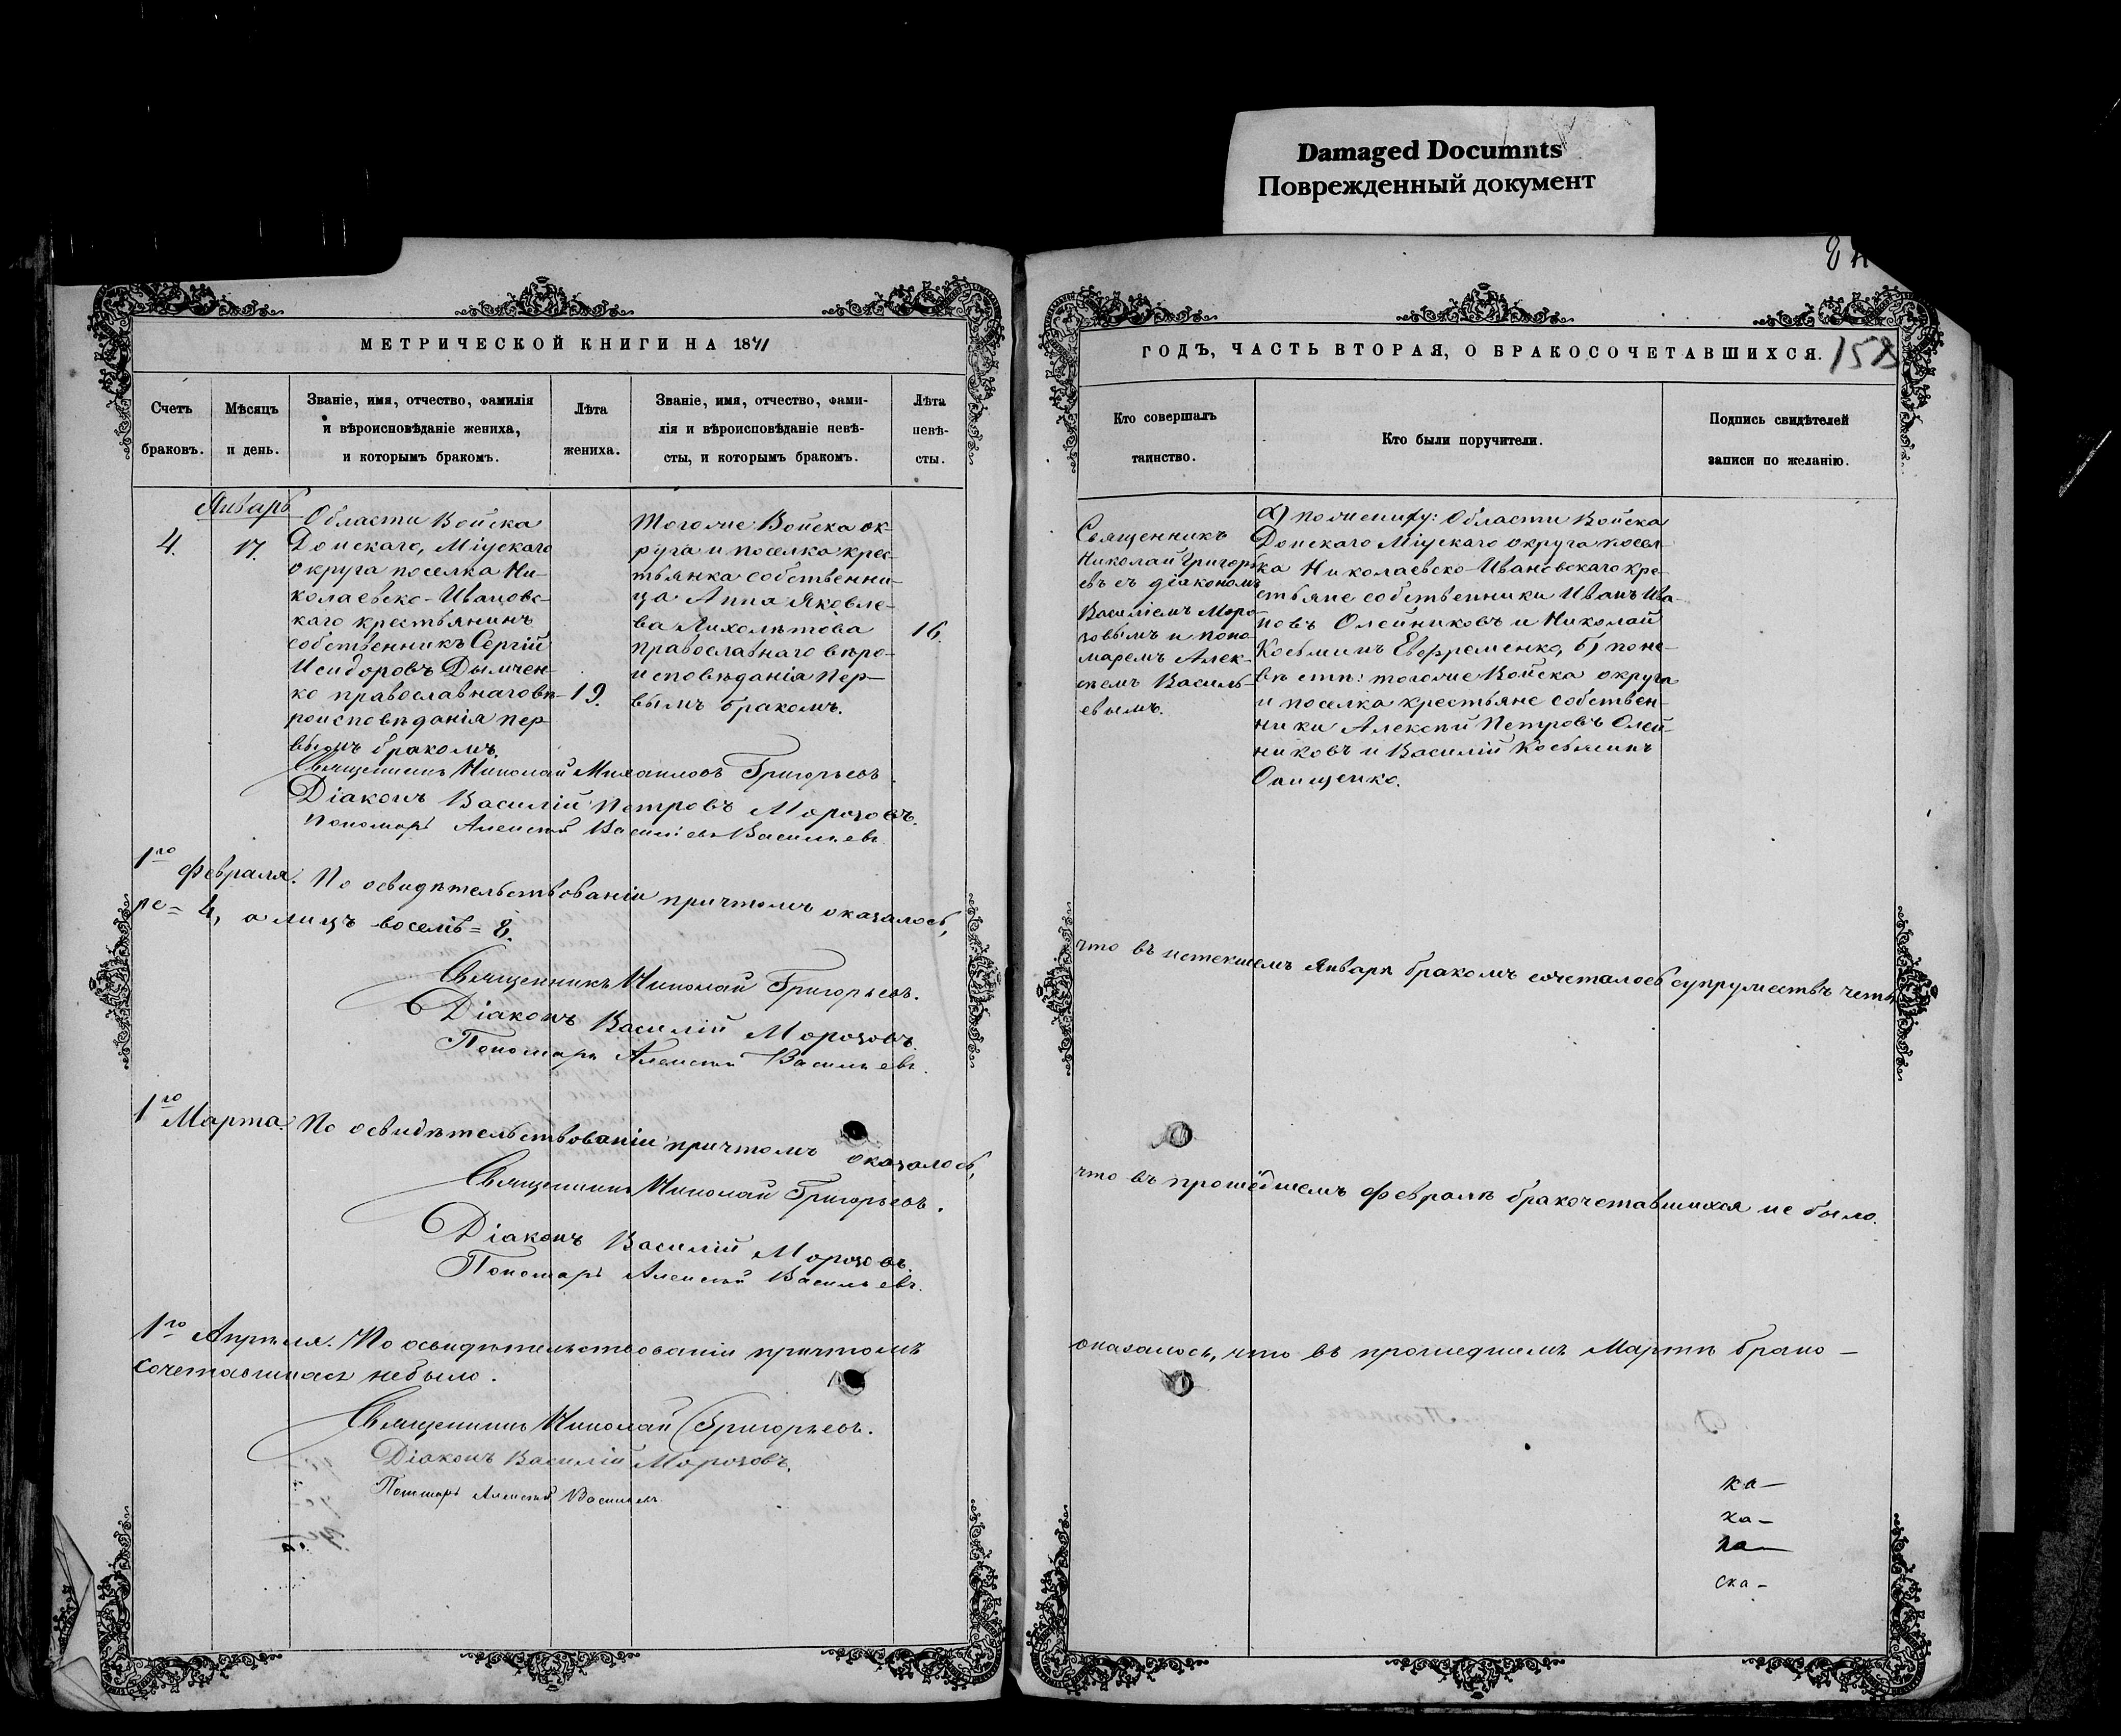 Damaged Documnts
Поврежденный документ
МЕТРИЧЕСКОЙ КНИГИ НА 1871
Счетъ
браковъ.
Мѣсяцъ
и день.
Званіе, имя, отчество, фамилія
и вѣроисповѣданіе жениха,
и которымъ бракомъ.
Лѣта
жениха.
Званіе, имя, отчество, фами-
лія и вѣроисповѣданіе невѣ-
сты, и которымъ бракомъ.
Лѣта
невѣ-
сты.
Январь
4.
17.
Области Войска
Донскаго, Міускаго
округа поселка Ни-
колаевско-Ивановс-
каго крестьянинъ
собственникъ Сергій
Исидоровъ Дымчен-
ко православнаго вѣ-
роисповѣданія пер-
вымъ бракомъ.
19.
Тогоже Войска ок-
руга и поселка крес-
тьянка собственни-
ца Анна Яковле-
ва Лихолѣтова
православнаго вѣро-
исповѣданія пер-
вымъ бракомъ.
16.
Священникъ Николай Михаиловъ Григорьевъ.
Діаконъ Василій Петровъ Морозовъ.
Пономарь Алексѣй Васильевъ Васильевъ.
1го Февраля. По освидѣтельствованіи причтомъ оказалось,
ре = 4, а лицъ восемь = 8.
Священникъ Николай Григорьевъ.
Діаконъ Василій Морозовъ.
Пономарь Алексѣй Васильевъ.
1го Марта. По освидѣтельствованіи причтомъ оказалось,
Священникъ Николай Григорьевъ.
Діаконъ Василій Морозовъ.
Пономарь Алексѣй Васильевъ.
1го Апрѣля. По освидѣтельствованіи причтомъ
сочетавшихся небыло.
Священникъ Николай Григорьевъ.
Діаконъ Василій Морозовъ.
Пономарь Алексѣй Васильевъ.
ГОДЪ, ЧАСТЬ ВТОРАЯ, О БРАКОСОЧЕТАВШИХСЯ.
Кто совершалъ
таинство.
Кто были поручители.
Подпись свидѣтелей
записи по желанію.
Священникъ
Николай Григорь-
евъ съ діакономъ
Василіемъ Моро-
зовымъ и поно-
маремъ Алек-
сѣемъ Василь-
евымъ.
а) по жениху: Области Войска
Донскаго Міускаго округа посел-
ка Николаевско-Ивановскаго кре-
стьяне собственники Иванъ Ива-
новъ Олейниковъ и Николай
Косьминъ Евфременко, б) по не-
вѣстѣ: тогоже Войска округа
и поселка крестьяне собствен-
ники Алексѣй Петровъ Олей-
никовъ и Василій Косьминъ
Онищенко.
что въ истекшемъ Январѣ бракомъ сочеталось супружествъ четы
что въ прошедшемъ Февралѣ бракочетавшихся не было.
оказалось, что въ прошедшемъ Мартѣ брако-
ка-
ка-
ка-
ска-